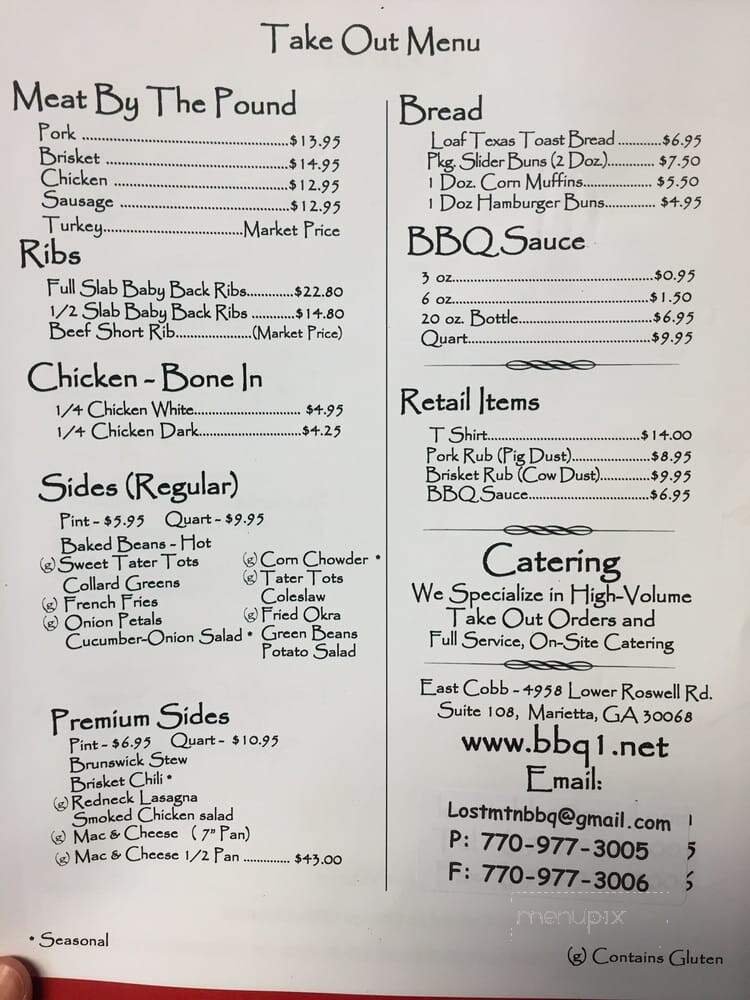 Take Out Menu
Meat By The Pound
Pork ................................................$13.95
Brisket ...........................................$14.95
Chicken .........................................$12.95
Sausage ........................................$12.95
Turkey.................................Market Price
Ribs
Full Slab Baby Back Ribs............$22.80
1/2 Slab Baby Back Ribs ..........$14.80
Beef Short Rib..................(Market Price)
Chicken ~ Bone In
1/4 Chicken White......................... $4.95
1/4 Chicken Dark........................$4.25
Sides (Regular)
Pint - $5.95 Quart - $9.95
Baked Beans - Hot
(g) Sweet Tater Tots
Collard Greens
(g) French Fries
(g) Onion Petals
Cucumber-Onion Salad *
(g) Corn Chowder *
(g) Tater Tots
Coleslaw
(g) Fried Okra
Green Beans
Potato Salad
Premium Sides
Pint - $6.95 Quart - $10.95
Brunswick Stew
Brisket Chili *
(g) Redneck Lasagna
Smoked Chicken salad
(g) Mac & Cheese ( 7" Pan)
(g) Mac & Cheese 1/2 Pan ............. $43.00
* Seasonal
Bread
Loaf Texas Toast Bread ...........$6.95
Pkg. Slider Buns (2 Doz.)............ $7.50
1 Doz. Corn Muffins................. $5.50
1 Doz Hamburger Buns............. $4.95
BBQ Sauce
3 oz................................................$0.95
6 oz...............................................$1.50
20 oz. Bottle................................$6.95
Quart...........................................$9.95
Retail Items
T Shirt.....................................$14.00
Pork Rub (Pig Dust)...................$8.95
Brisket Rub (Cow Dust)............$9.95
BBQ Sauce.............................$6.95
Catering
We Specialize in High-Volume
Take Out Orders and
Full Service, On-Site Catering
East Cobb - 4958 Lower Roswell Rd.
Suite 108, Marietta, GA 30068
www.bbq1.net
Email:
Lostmtnbbq@gmail.com
P: 770-977-3005 5
F: 770-977-3006
menupix
(g) Contains Gluten